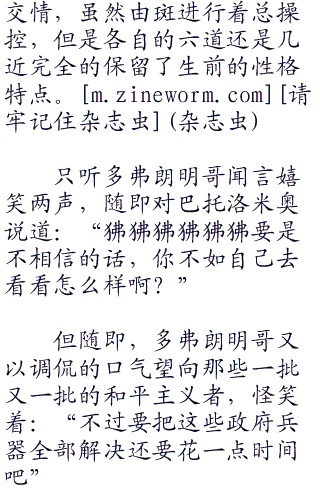 交情，虽然由斑进行着总操
控，但是各自的六道还是几
近完全的保留了生前的性格
特点。[m.zineworm.com][请
牢记住杂志虫](杂志虫)
只听多弗朗明哥闻言嬉
笑两声，随即对巴托洛米奥
说道：“狒狒狒狒狒狒要是
不相信的话，你不如自己去
看看怎么样啊？”
但随即，多弗朗明哥又
以调侃的口气望向那些一批
又一批的和平主义者，怪笑
着：“不过要把这些政府兵
器全部解决还要花一点时间
吧”